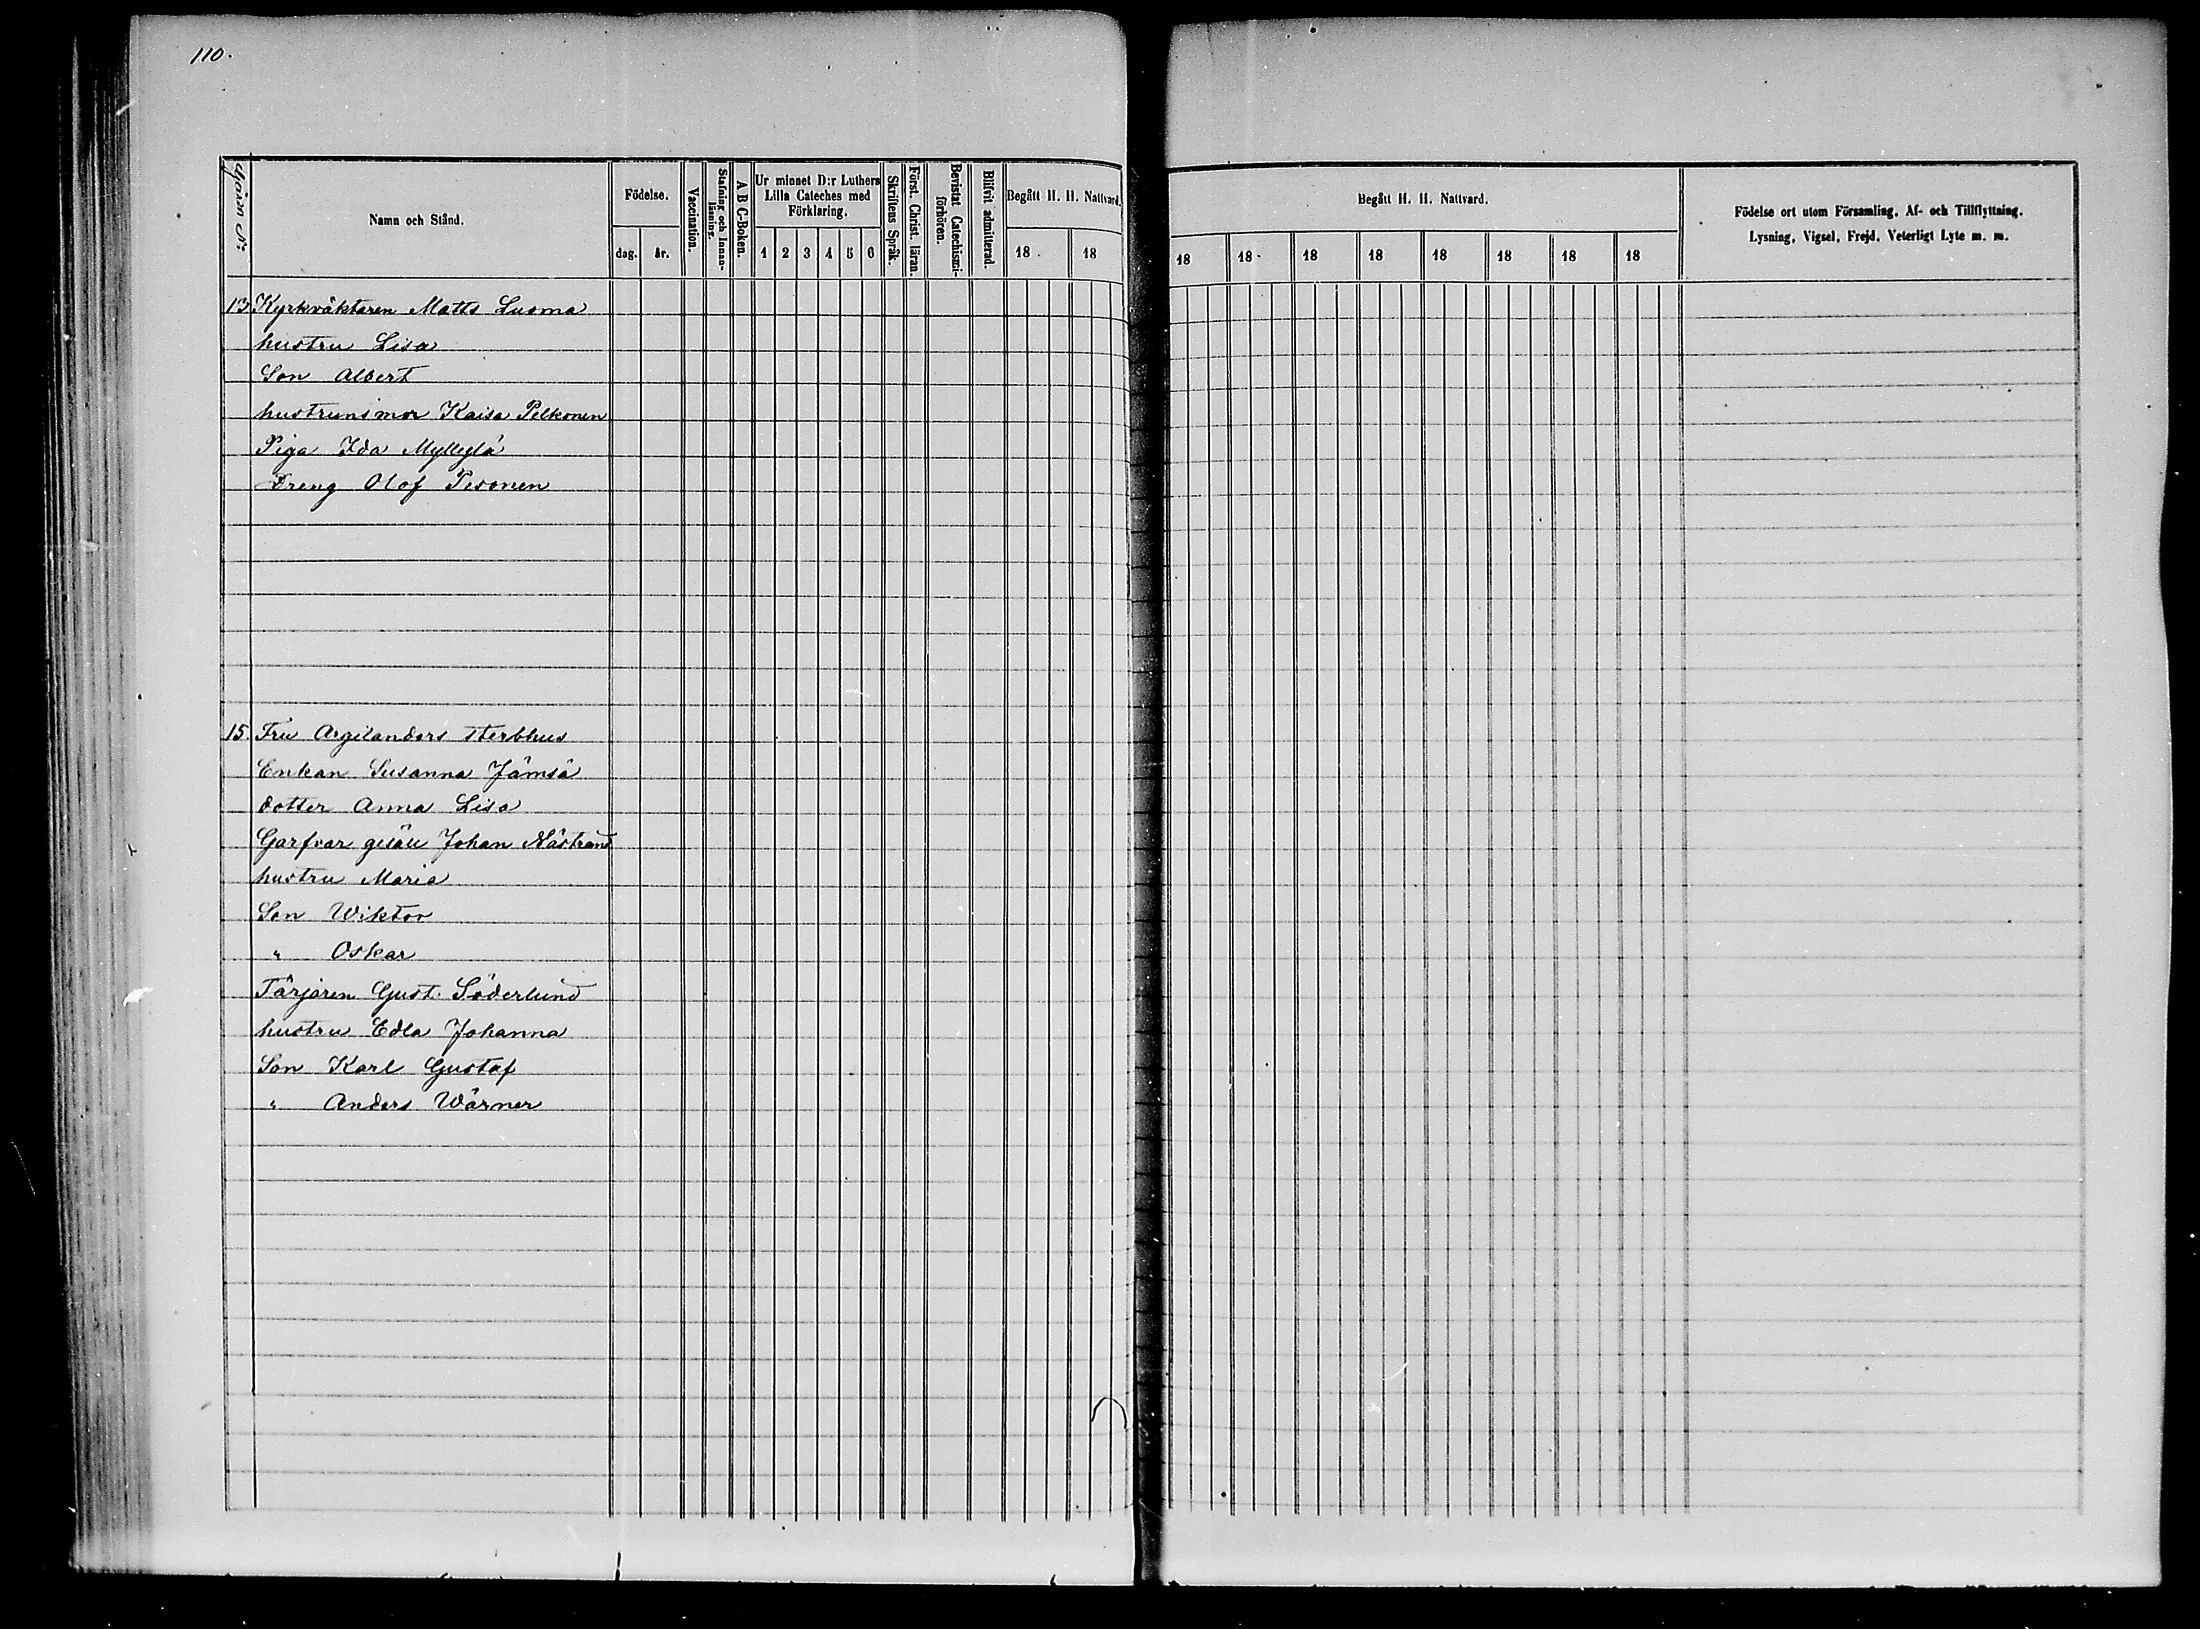 110.
Gårds Nr
Namn och Stånd.
Födelse.
dag.
år.
Vaccination.
Stafning och Innan-
läsning.
A B C-Boken.
Ur minnet D:r Luthers
Lilla Cateches med
Förklaring.
1 2 3 4 5 6
Skriftens Språk.
Först. Christ. läran.
Bevistat Catechismi-
förhören.
Blifvit admitterad.
Begått H. H. Nattvard.
18 18
Begått H. H. Nattvard.
18 18 18 18 18 18 18 18
Födelse ort utom Församling, Af- och Tillflyttning,
Lysning, Vigsel, Frejd, Veterligt Lyte m. m.
13 Kyrkväktaren Matts Luoma
hustru Lisa
Son Albert
hustruns mor Kaisa Pelkonen
Piga Ida Myllylä
Dreng Olof Pesonen
15. Fru Argilanders sterbhus
Enkan Susanna Jämsä
dotter Anna Lisa
Garfvar gesäll Johan Nästrand
hustru Maria
Son Wiktor
" Oskar
Färjaren Gust. Söderlund
hustru Edla Johanna
Son Karl Gustaf
" Anders Wärner